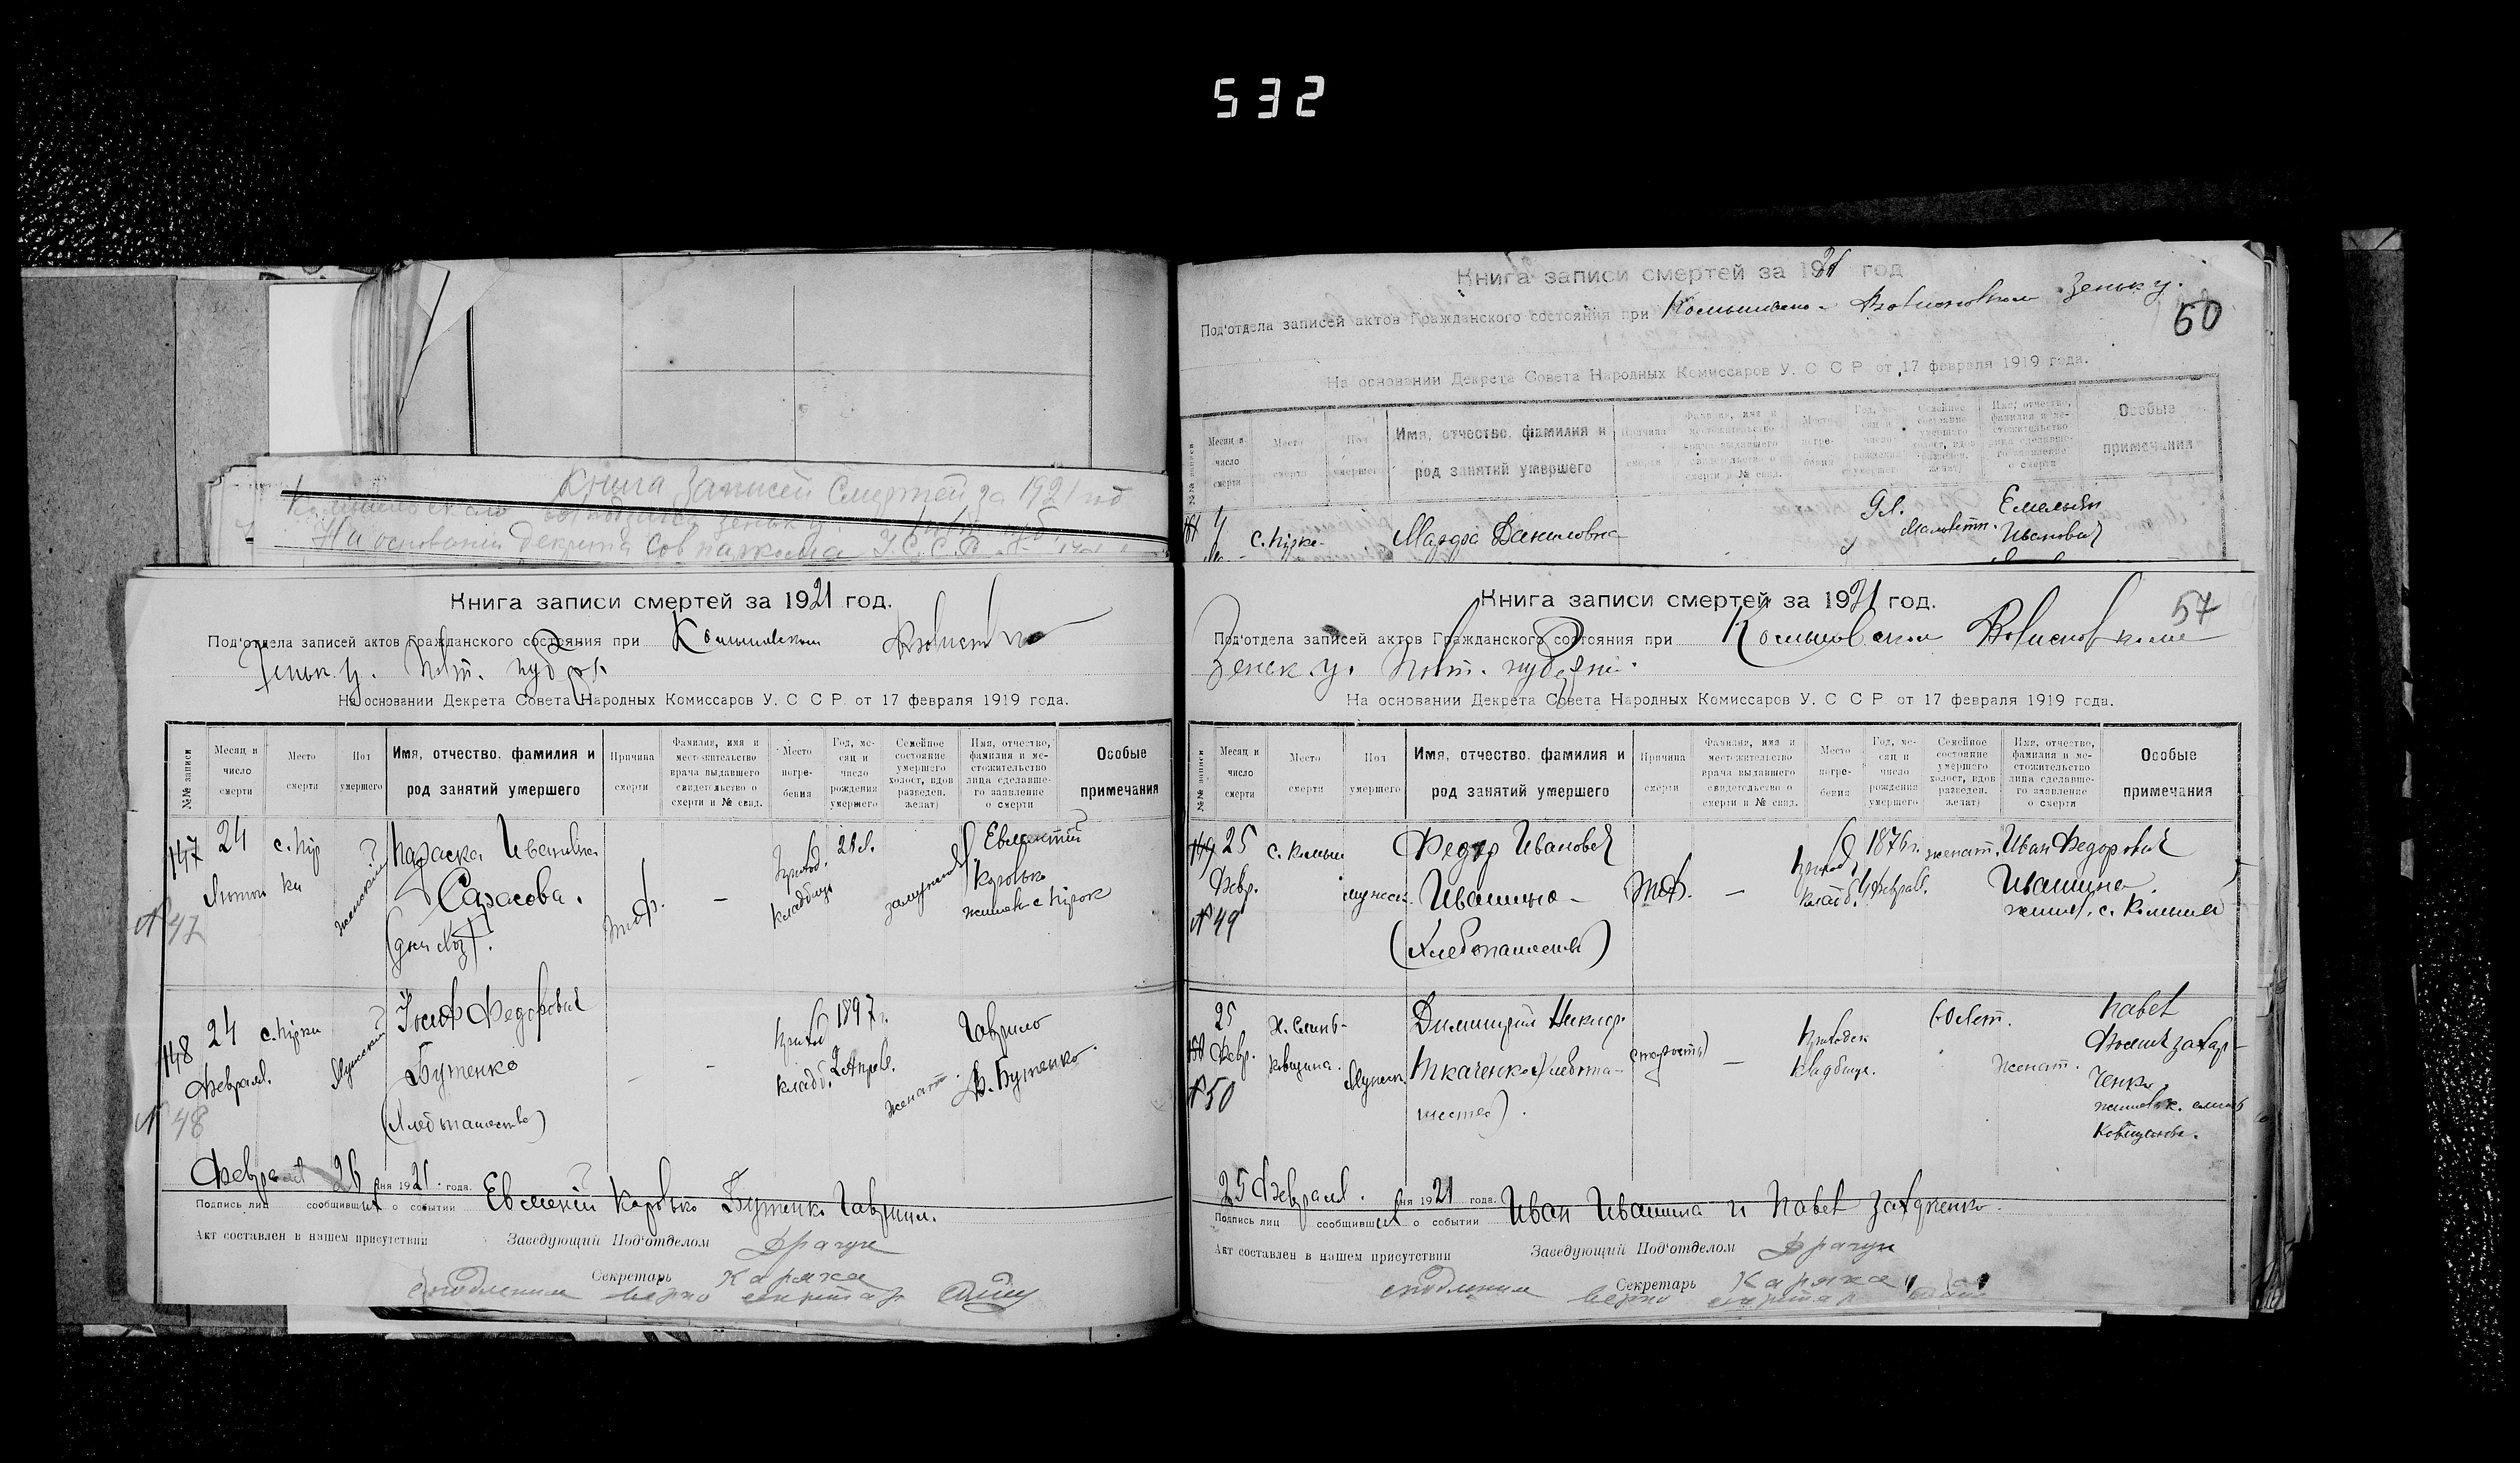 532
Книга записи смертей за 1921 год
Под'отдела записей актов Гражданского состояния при
50
На основании Декрета Совета Народных Комиссаров У. С С Р от 17 февраля 1919 года.
№№ записи
Месяц и число смерти
Место смерти
Пол умершего
Имя, отчество, фамилия и род занятий умершего
Причина смерти
Фамилия, имя и местожительство врача выдавшего свидетельство о смерти и № свид.
Место погребения
Год, месяц и число рождения умершего
Семейное состояние умершего холост, вдов разведен. женат)
Имя, отчество, фамилия и местожительство лица сделавшего заявление о смерти
Особые примечания
Марфа Даниловна
9 л.
Емельян
Иванович
Книга Записей Смертей за 1921 год
На основании Декрета Совнаркома У.С.С.Р.
Книга записи смертей за 1921 год.
Под'отдела записей актов Гражданского состояния при
Зеньк у. Полт. губерн.
На основании Декрета Совета Народных Комиссаров У. С С Р от 17 февраля 1919 года.
№№ записи
Месяц и
число
смерти
Место
смерти
Пол
умершего
Имя, отчество, фамилия и
род занятий умершего
Причина
смерти
Фамилия, имя и
местожительство
врача выдавшего
свидетельство о
смерти и № свид.
Место
погре-
бения
Год, ме-
сяц и
число
рождения
умершего
Семейное
состояние
умершего
холост, вдов
разведен.
женат)
Имя, отчество,
фамилия и ме-
стожительство
лица сделавше-
го заявление
о смерти
Особые
примечания
147
24
Женский
Параска Ивановна
тиф.
—
Приход.
кладбище
28 л.
замужняя
Коровько
№ 47
148
24
Февраля.
Мужской
Иосиф Федорович
Бутенко
(хлебопашество)
-
-
Приход
кладб.
1897 г.
2 Апреля.
женат.
Гаврило
Ф. Бутенко.
№ 48
Февраля 26 дня 1921 года.
Подпись лиц сообщивших о событии Евмений Коровько Бутенко Гаврило.
Акт составлен в нашем присутствии Заведующий Под'отделом Драгун
Секретарь Каряка
верно секретарь
57
Книга записи смертей за 1921 год.
Под'отдела записей актов Гражданского состояния при
Зеньк у. Полт. губерни.
На основании Декрета Совета Народных Комиссаров У. С С Р от 17 февраля 1919 года.
№№ записи
Месяц и
число
смерти
Место
смерти
Пол
умершего
Имя, отчество, фамилия и
род занятий умершего
Причина
смерти
Фамилия, имя и
местожительство
врача выдавшего
свидетельство о
смерти и № свид.
Место
погре-
бения
Год, ме-
сяц и
число
рождения
умершего
Семейное
состояние
умершего
холост, вдов
разведен.
женат)
Имя, отчество,
фамилия и ме-
стожительство
лица сделавше-
го заявление
о смерти
Особые
примечания
149
25
Февр.
с. Комыш
мужск.
Федор Иванович
Ивашина -
(хлебопашество)
тиф.
—
Приход.
кладб.
1876 г.
4 феврал.
женат.
Иван Федорович
Ивашина.
№ 49
150
25
Февр.
Мужск.
Димитрий Никиф.
Ткаченко (хлебопа-
шество).
старость
—
Приходск
кладбище.
60 лет.
женат.
Павел
Захар-
ченко
№ 50
25 Февраля. дня 1921 года.
Подпись лиц сообщивших о событии Иван Ивашина и Павел Захарченко.
Акт составлен в нашем присутствии Заведующий Под'отделом Драгун
Секретарь Каряка
верно секретар